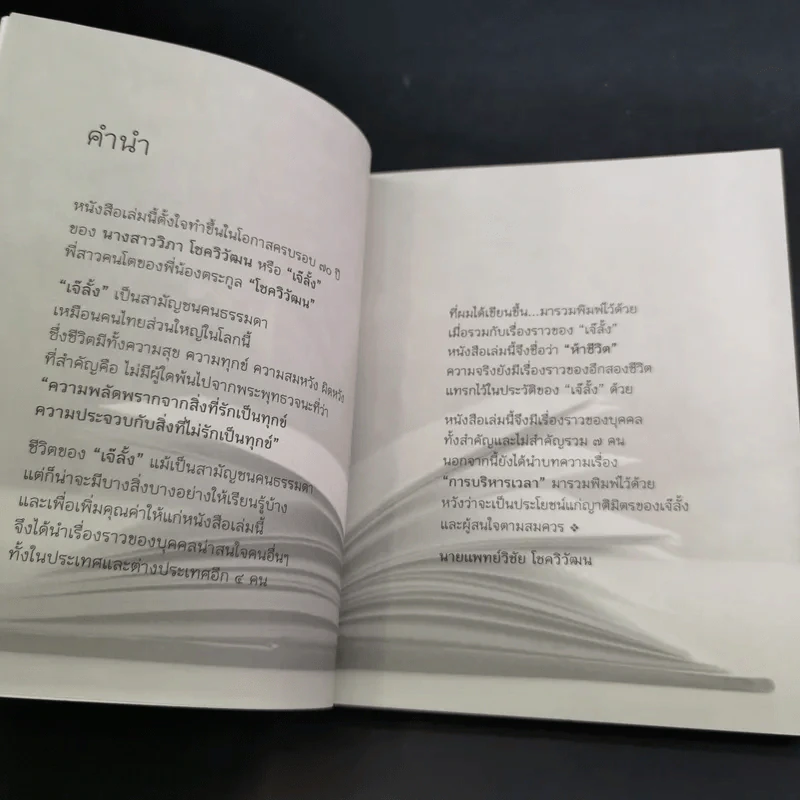 คำนำ
หนังสือเล่มนี้ตั้งใจทำขึ้นในโอกาสครบรอบ ๗๐ ปี
ของ นางสาววิภา โชควิวัฒน หรือ “เจ๊ลั้ง”
พี่สาวคนโตของพี่น้องตระกูล “โชควิวัฒน”
“เจ๊ลั้ง” เป็นสามัญชนคนธรรมดา
เหมือนคนไทยส่วนใหญ่ในโลกนี้
ซึ่งชีวิตมีทั้งความสุข ความทุกข์ ความสมหวัง ผิดหวัง
ที่สำคัญคือ ไม่มีผู้ใดพ้นไปจากพระพุทธวจนะที่ว่า
“ความพลัดพรากจากสิ่งที่รักเป็นทุกข์
ความประจวบกับสิ่งที่ไม่รักเป็นทุกข์”
ชีวิตของ “เจ๊ลั้ง” แม้เป็นสามัญชนคนธรรมดา
แต่ก็น่าจะมีบางสิ่งบางอย่างให้เรียนรู้บ้าง
และเพื่อเพิ่มคุณค่าให้แก่หนังสือเล่มนี้
จึงได้นำเรื่องราวของบุคคลน่าสนใจคนอื่นๆ
ทั้งในประเทศและต่างประเทศอีก ๔ คน
ที่ผมได้เขียนขึ้น...มารวมพิมพ์ไว้ด้วย
เมื่อรวมกับเรื่องราวของ “เจ๊ลั้ง”
หนังสือเล่มนี้จึงชื่อว่า “ห้าชีวิต”
ความจริงยังมีเรื่องราวของอีกสองชีวิต
แทรกไว้ในประวัติของ “เจ๊ลั้ง” ด้วย
หนังสือเล่มนี้จึงมีเรื่องราวของบุคคล
ทั้งสำคัญและไม่สำคัญรวม ๗ คน
นอกจากนี้ยังได้นำบทความเรื่อง
“การบริหารเวลา” มารวมพิมพ์ไว้ด้วย
หวังว่าจะเป็นประโยชน์แก่ญาติมิตรของเจ๊ลั้ง
และผู้สนใจตามสมควร ❖
นายแพทย์วิชัย โชควิวัฒน